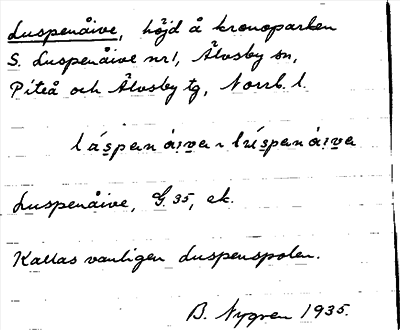 Luspenåive, höjd å kronoparken
S. Luspenåive nr 1, Älvsby sn,
Piteå och Älvsby tg, Norrb. l.
Luspenåive, G. 35, ek.
Kallas vanligen Luspenspolen.
B. Nygren 1935.